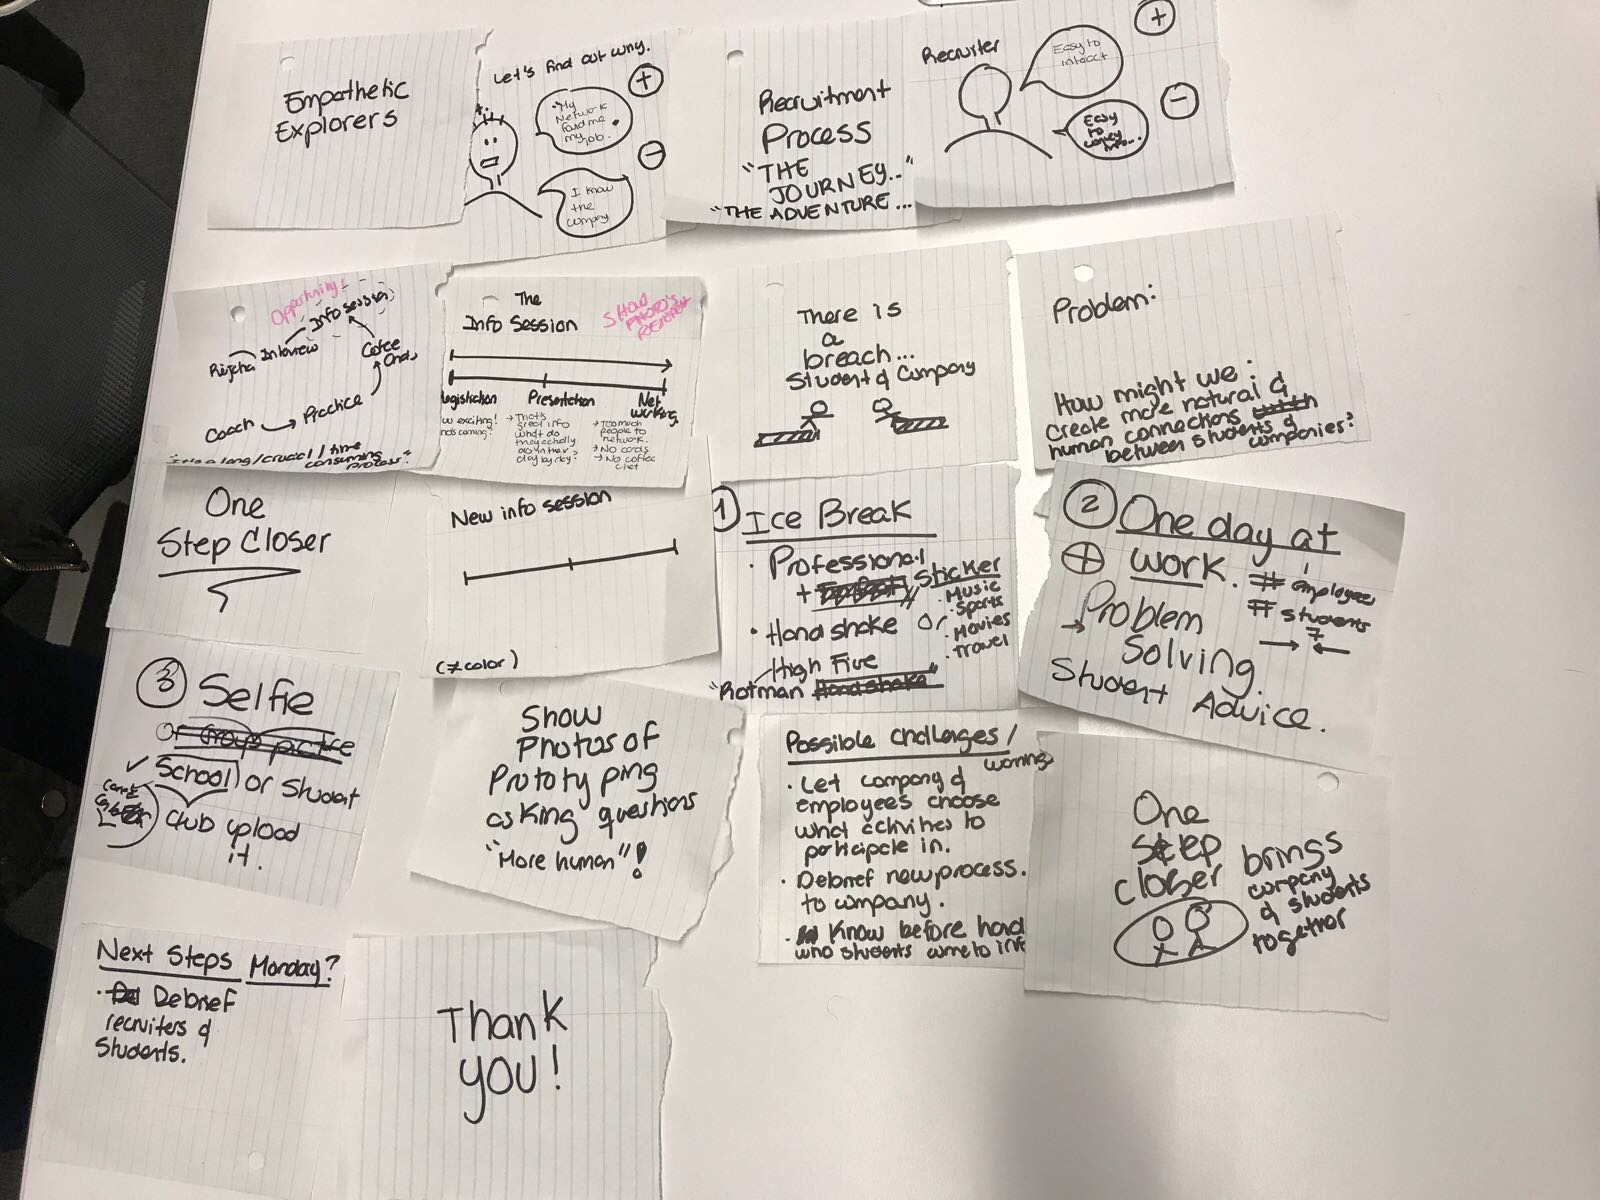 Empathetic
Explorers
Let's find out why.
+
"My
Network
found me
my job.
-
I know
the
company
Recruitment
Process
"THE
JOURNEY.."
"THE ADVENTURE...
Recruiter
+
Easy to
interact
-
Easy
to
convey
info...
Opportunity!
Info session
Interview
Cofee
Chats
Coach
Practice
It's a long/crucial/time
consuming
process"
The
Info Session
SHOW
PHOTO'S
Presentation
Net
working
exciting!
coming?
→ That's
great info
what do
they actually
do
day by day?
→ Too much
people to
network.
→ No cards
→ No coffee
chat
There is
a
breach...
Student & Company
Problem:
How might we:
Create more natural &
human connections
between students &
companies?
One
Step Closer
New info session
(≠ color)
1 Ice Break
• Professional
+ Sticker
• Music
• Sports
• Movies
• Travel
• Handshake or
High Five
"Rotman Handshake"
2 One day at
+ work.
# employees
# students
→ Problem
Solving
Student Advice.
3 Selfie
Or Group picture
✓ School or Student
Club upload
it.
Show
Photos of
Prototyping
asking questions
"More human"!
Possible Challenges/
warnings
• Let company &
employees choose
what activities to
participate in.
• Debrief new process.
to company.
• Know before hand
who students come to info
One
step
closer brings
company
& students
together
Next Steps Monday?
• Debrief
recruiters &
Students.
Thank
you!